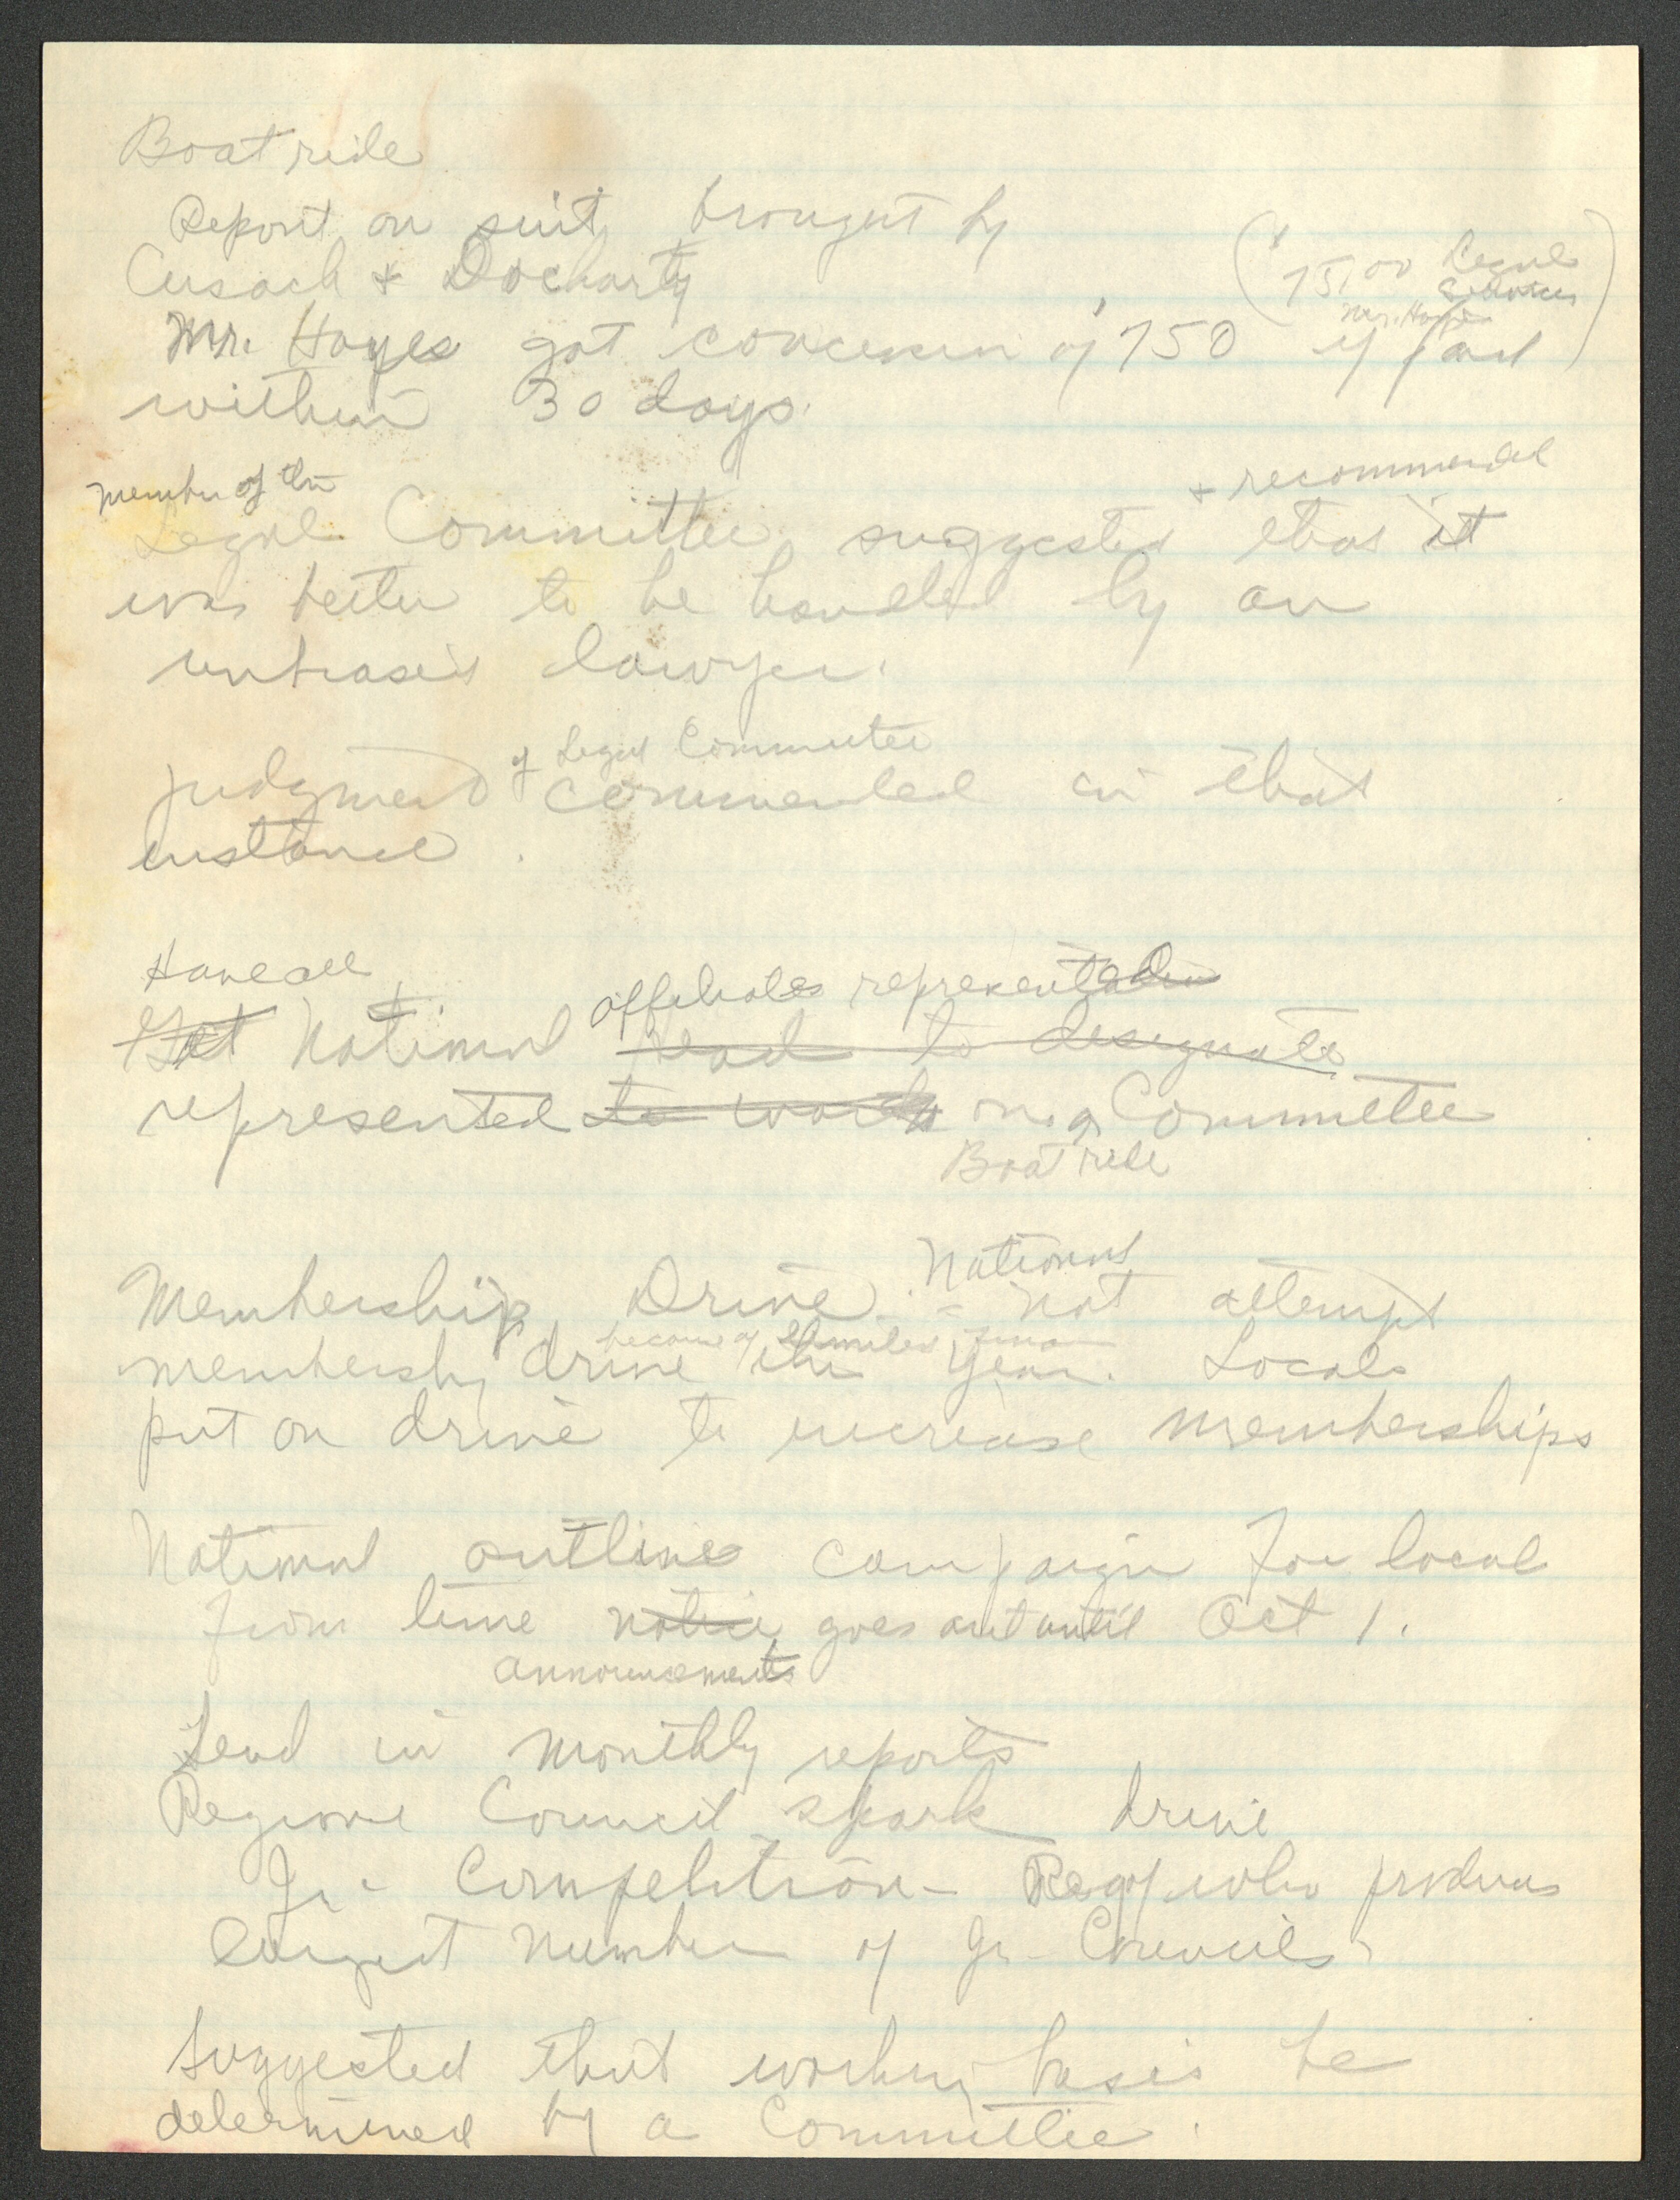 Boat ride
Report on suit brought by
Cusack & Docharty
($75.00 Legal
Services
Mr. Hayes)
Mr. Hayes got concession of $750 if paid
within 30 days.
member of the
& recommended
Legal Committee suggested that it
was better to be handled by an
unbiased lawyer.
of Legal Committee
judgment commended in that
instance.
Have all
affiliates representation
Get National head to designate
represented to work on a Committee
Boat ride
National
Membership Drive - not attempt
because of limited
membership drive this year. Locals
put on drive to increase memberships
National outline campaign for local
from time notice goes out until Oct 1.
announcements
Send in monthly reports
Regional Council spark drive
Jr - Competition - Region who produces
largest number of Jr - Councils
Suggested that working basis be
determined by a Committee.